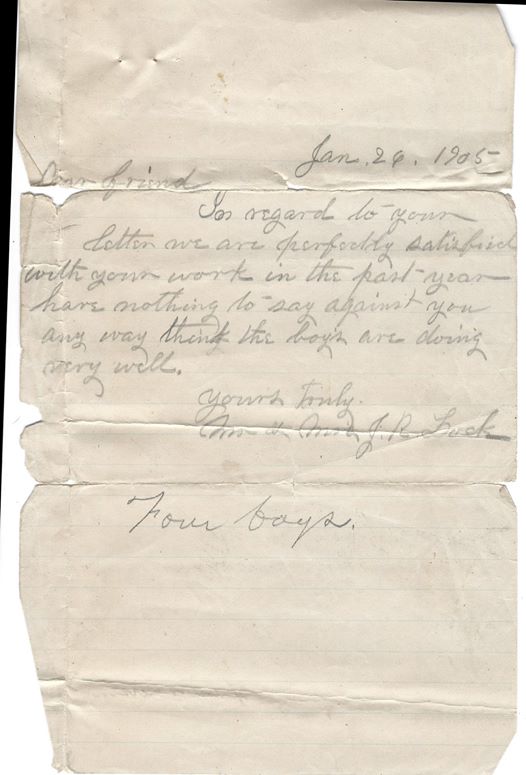 Jan. 26. 1905
Our friend
In regard to your
letter we are perfectly satisfied
with your work in the past year
have nothing to say against you
any way think the boys are doing
very well.
Yours truly.
Mr & Mrs J. R.
Four boys.